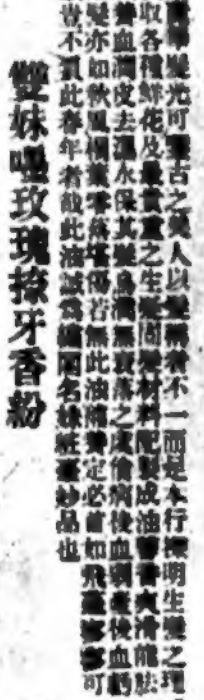 髮光可鑒古之美人以髮稱者不一而足本行探明生髮之理
取各種鮮花及最貴重之生髮固髮材料配製成油馨香爽滑能法
血潤皮去溫水保其髮良潤無衰落之虞倘病後血弱產後血虧
髮亦如秋風掃葉零落堪傷若無此油隨身定必首如飛蓬
不負此春年者哉此油誠為繡閣名妹粧臺妙品也
雙妹嘜玫瑰擦牙香粉